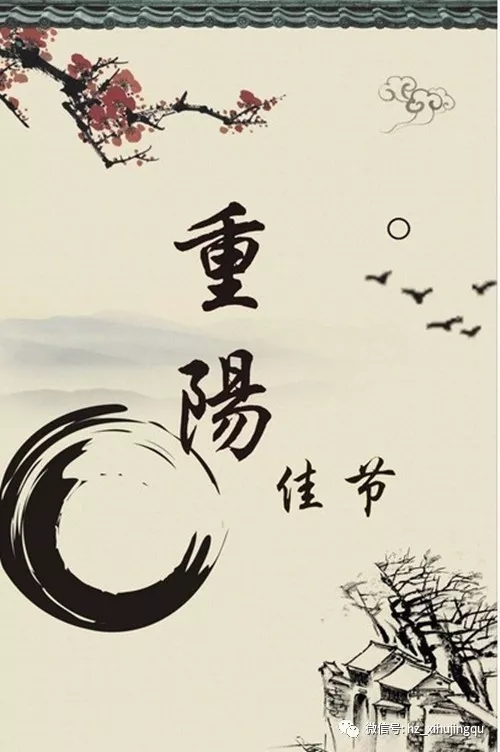 重
陽
佳节
微信号: hz_xihujingqu